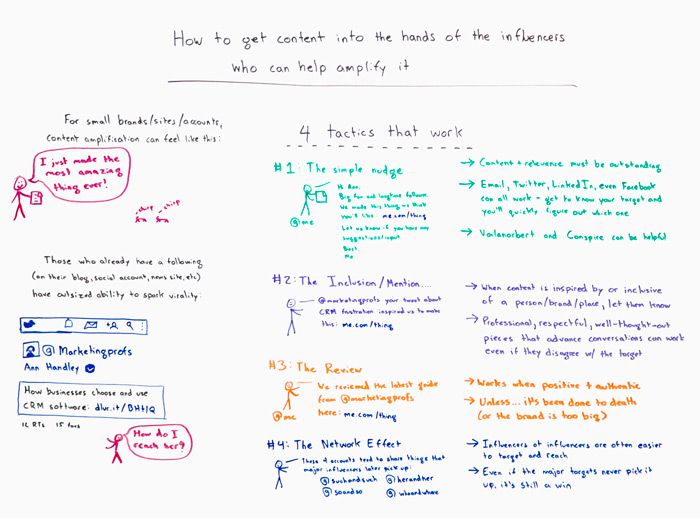 How to get content into the hands of the influencers
who can help amplify it
For small brands/sites/accounts,
content amplification can feel like this:
I just made the
most amazing
thing ever!
chirp
chirp
Those who already have a following
(on their blog, social account, news site, etc)
have outsized ability to spark virality:
@Marketingprofs
Ann Handley
How businesses choose and use
CRM software: dlvr.it/BHH1Q
12 RTs 15 favs
How do I
reach her?
4 tactics that work
#1: The simple nudge
Hi Ann,
Big fan and longtime follower.
We made this thing we think
you'll like me.com/thing
Let us know if you have any
suggestions/input.
Best,
Me
@me
→ Content + relevance must be outstanding
→ Email, Twitter, LinkedIn, even Facebook
can all work - get to know your target and
you'll quickly figure out which one
→ Voilanorbert and Conspire can be helpful
#2: The Inclusion/Mention....
@marketingprofs your tweet about
CRM frustration inspired us to make
this: me.com/thing
→ When content is inspired by or inclusive
of a person/brand/place, let them know
→ Professional, respectful, well-thought-out
pieces that advance conversations can work
even if they disagree w/ the target
#3: The Review
We reviewed the latest guide
from @marketingprofs
here: me.com/thing
@me
→ Works when positive + authentic
→ Unless... it's been done to death
(or the brand is too big)
#4: The Network Effect
These 4 accounts tend to share things that
major influencers later pick up:
@suchandsuch @herandher
@soandso @whoandwhere
→ Influencers of influencers are often easier
to target and reach
→ Even if the major targets never pick it
up, it's still a win